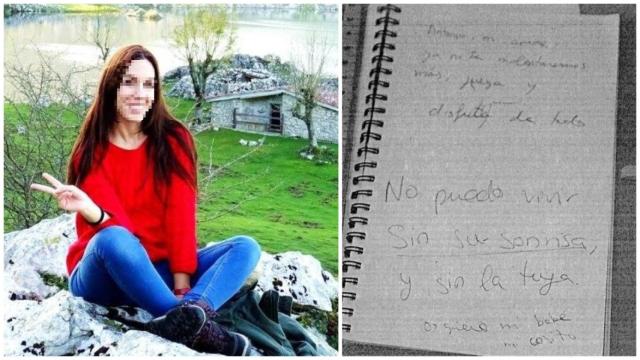 Antonio, mi amor,
ya no te molestaremos
más, juega y
disfruta de
No puedo vivir
Sin su sonrisa,
y sin la tuya.
os quiero mi bebé
mi